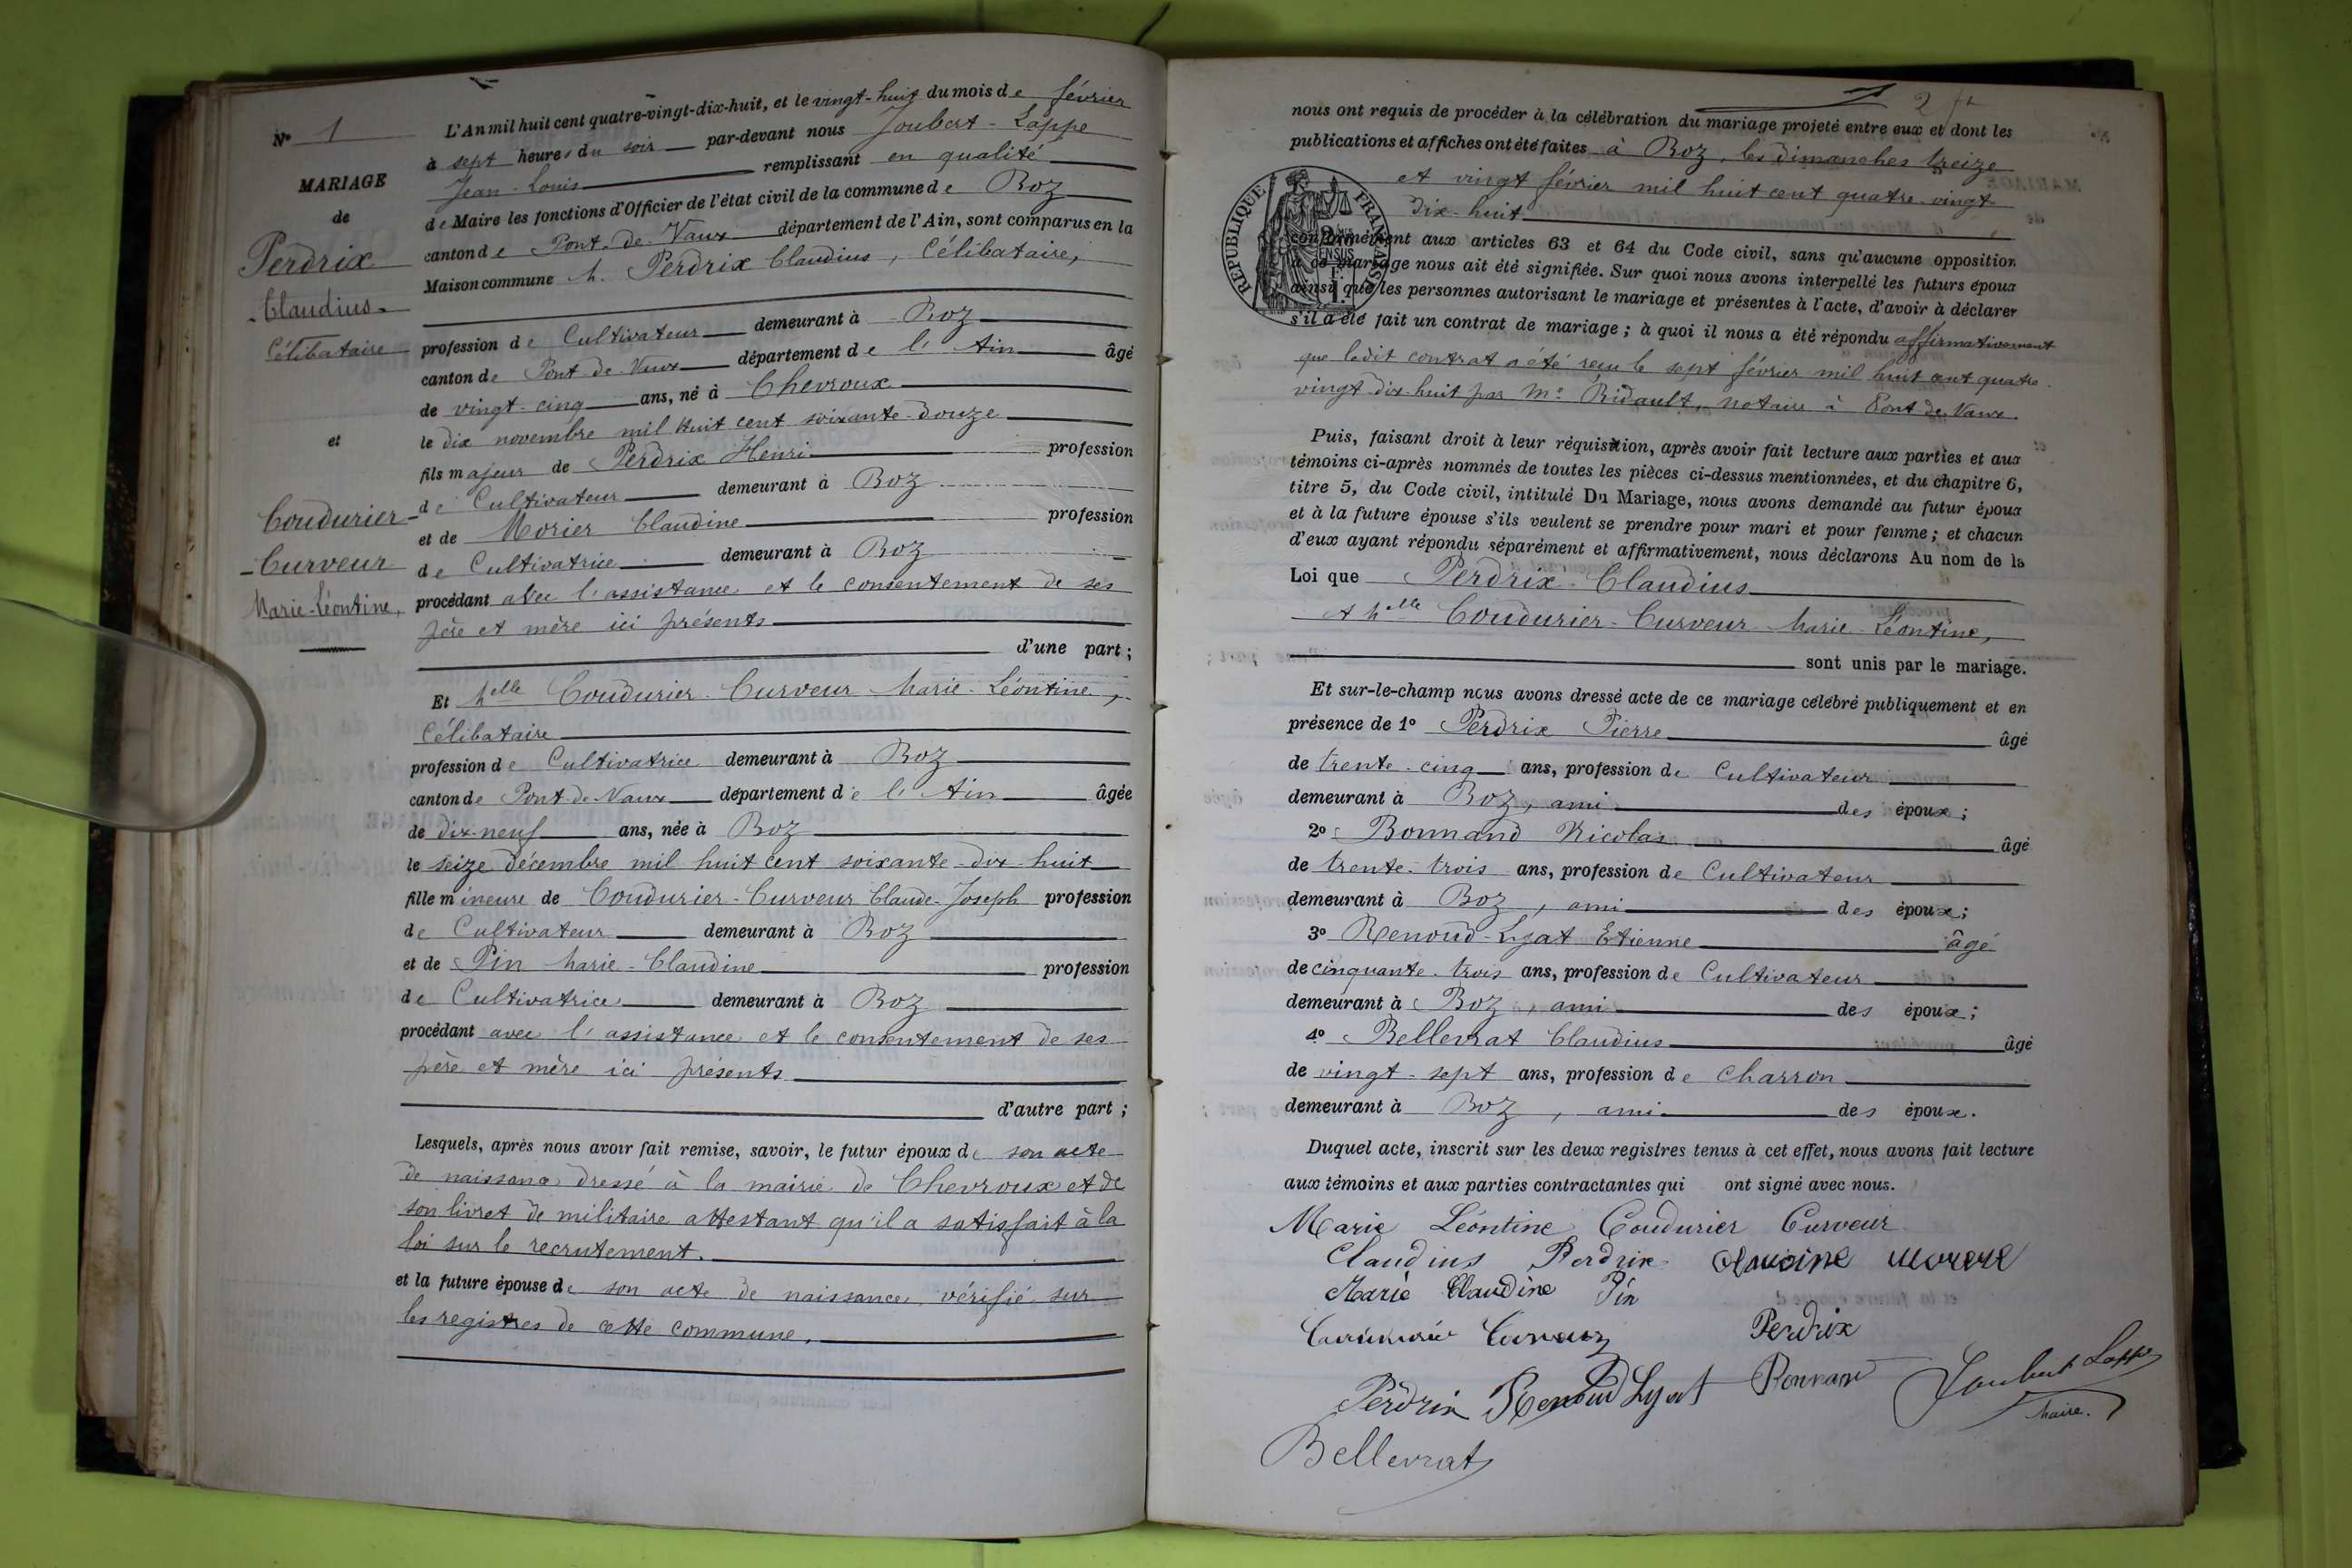 N° 1
MARIAGE
de
Perdrix
Claudius
Célibataire
et
Coudurier-
-Curveur
Marie-Léontine,
L'An mil huit cent quatre-vingt-dix-huit, et le vingt-huit du mois de février
à sept heures du soir par-devant nous Joubert-Lappe
Jean-Louis remplissant en qualité
de Maire les fonctions d'Officier de l'état civil de la commune de Boz
canton de Pont-de-Vaux département de l'Ain, sont comparus en la
Maison commune M. Perdrix Claudius, Célibataire,
profession de Cultivateur demeurant à Boz
canton de Pont-de-Vaux département de l'Ain âgé
de vingt-cinq ans, né à Chevroux
le dix novembre mil huit cent soixante-douze
fils majeur de Perdrix Henri profession
de Cultivateur demeurant à Boz
et de Morier Claudine profession
de Cultivatrice demeurant à Boz
procédant avec l'assistance et le consentement de ses
père et mère ici présents
d'une part ;
Et Melle Coudurier-Curveur Marie-Léontine,
Célibataire
profession de Cultivatrice demeurant à Boz
canton de Pont-de-Vaux département de l'Ain âgée
de dix-neuf ans, née à Boz
le seize décembre mil huit cent soixante-dix-huit
fille mineure de Coudurier-Curveur Claude-Joseph profession
de Cultivateur demeurant à Boz
et de Pin Marie-Claudine profession
de Cultivatrice demeurant à Boz
procédant avec l'assistance et le consentement de ses
père et mère ici présents
d'autre part ;
Lesquels, après nous avoir fait remise, savoir, le futur époux de son acte
de naissance dressé à la mairie de Chevroux et de
son livret de militaire attestant qu'il a satisfait à la
loi sur le recrutement.
et la future épouse de son acte de naissance, vérifié sur
les registres de cette commune,
2
nous ont requis de procéder à la célébration du mariage projeté entre eux et dont les
publications et affiches ont été faites à Boz, les dimanches treize
et vingt février mil huit cent quatre-vingt
dix-huit
RÉPUBLIQUE FRANÇAISE
conformément aux articles 63 et 64 du Code civil, sans qu'aucune opposition
à ce mariage nous ait été signifiée. Sur quoi nous avons interpellé les futurs époux
ainsi que les personnes autorisant le mariage et présentes à l'acte, d'avoir à déclarer
s'il a été fait un contrat de mariage ; à quoi il nous a été répondu affirmativement
que ledit contrat a été reçu le sept février mil huit cent quatre-
vingt-dix-huit par Me Ridault, notaire à Pont de Vaux.
Puis, faisant droit à leur réquisition, après avoir fait lecture aux parties et aux
témoins ci-après nommés de toutes les pièces ci-dessus mentionnées, et du chapitre 6,
titre 5, du Code civil, intitulé Du Mariage, nous avons demandé au futur époux
et à la future épouse s'ils veulent se prendre pour mari et pour femme ; et chacun
d'eux ayant répondu séparément et affirmativement, nous déclarons Au nom de la
Loi que Perdrix Claudius
et Melle Coudurier-Curveur Marie-Léontine,
sont unis par le mariage.
Et sur-le-champ nous avons dressé acte de ce mariage célébré publiquement et en
présence de 1° Perdrix Pierre âgé
de trente-cinq ans, profession de Cultivateur
demeurant à Boz, ami des époux ;
2° Bonnand Nicolas âgé
de trente-trois ans, profession de Cultivateur
demeurant à Boz, ami des époux ;
3° Renoud-Lyat Etienne âgé
de cinquante-trois ans, profession de Cultivateur
demeurant à Boz, ami des époux ;
4° Bellevrat Claudius âgé
de vingt-sept ans, profession de Charron
demeurant à Boz, ami des époux.
Duquel acte, inscrit sur les deux registres tenus à cet effet, nous avons fait lecture
aux témoins et aux parties contractantes qui ont signé avec nous.
Marie Léontine Coudurier Curveur
Claudius Perdrix
Marie Claudine Pin
Perdrix
Perdrix Renoud Lyat Bonnand Joubert Lappe
Maire.
Bellevrat